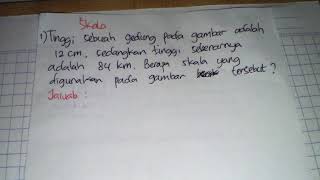 Skala
1) Tinggi sebuah gedung pada gambar adalah
12 cm. Sedangkan tinggi sebenarnya
adalah 84 km. Berapa skala yang
digunakan pada gambar tersebut ?
Jawab :